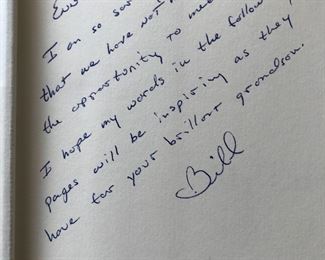 I am so
that we have not
the opportunity to
I hope my words in the
pages will be inspiring as they
have for your brilliant grandson.
Bill